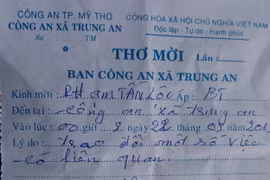 CÔNG AN TP. MỸ THO
CÔNG AN XÃ TRUNG AN
Số TM
CỘNG HÒA XÃ HỘI CHỦ NGHĨA VIỆT NAM
Độc lập - Tự do - Hạnh phúc
THƠ MỜI Lần:
BAN CÔNG AN XÃ TRUNG AN
Kính mời: PHẠM TẤN LỘC Ấp: BT
Đến tại: Công an xã Trung an
Vào lúc giờ ngày 22
Lý do: Trao đổi một số việc
có liên quan